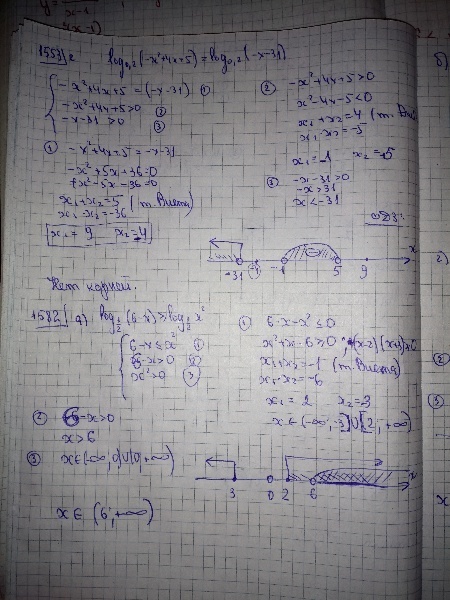 1553/2 log₀,₂(-x²+4x+5) = log₀,₂(-x-31)
-x²+4x+5 = (-x-31) ①
-x²+4x+5>0 ②
-x-31 >0 ③
① -x²+4x+5=-x-31
-x²+5x+36=0
x²-5x-36=0
x₁+x₂=5 (т. Виета)
x₁·x₂=-36
x₁=9 x₂=-4
② -x²+4x+5>0
x²-4x-5<0
x₁+x₂=4 (т. Ви
x₁·x₂=-5
x₁=-1 x₂=5
③ -x-31>0
-x>31
x<-31
-31 -4 -1 5 9 x
Нет корней.
1582 log½(6-x) ≥ log½ x²
6-x≤x² ①
6-x>0 ②
x²>0 ③
① 6-x-x²≤0
x²+x-6≥0; (x-2)(x+3)≥0
x₁+x₂=-1 (т. Виета)
x₁·x₂=-6
x₁=2 x₂=-3
x∈(-∞;-3]∪[2;+∞)
② 6-x>0
x>6
③ x∈(-∞;0)∪(0;+∞)
3 0 2 6 x
x∈(6;+∞)